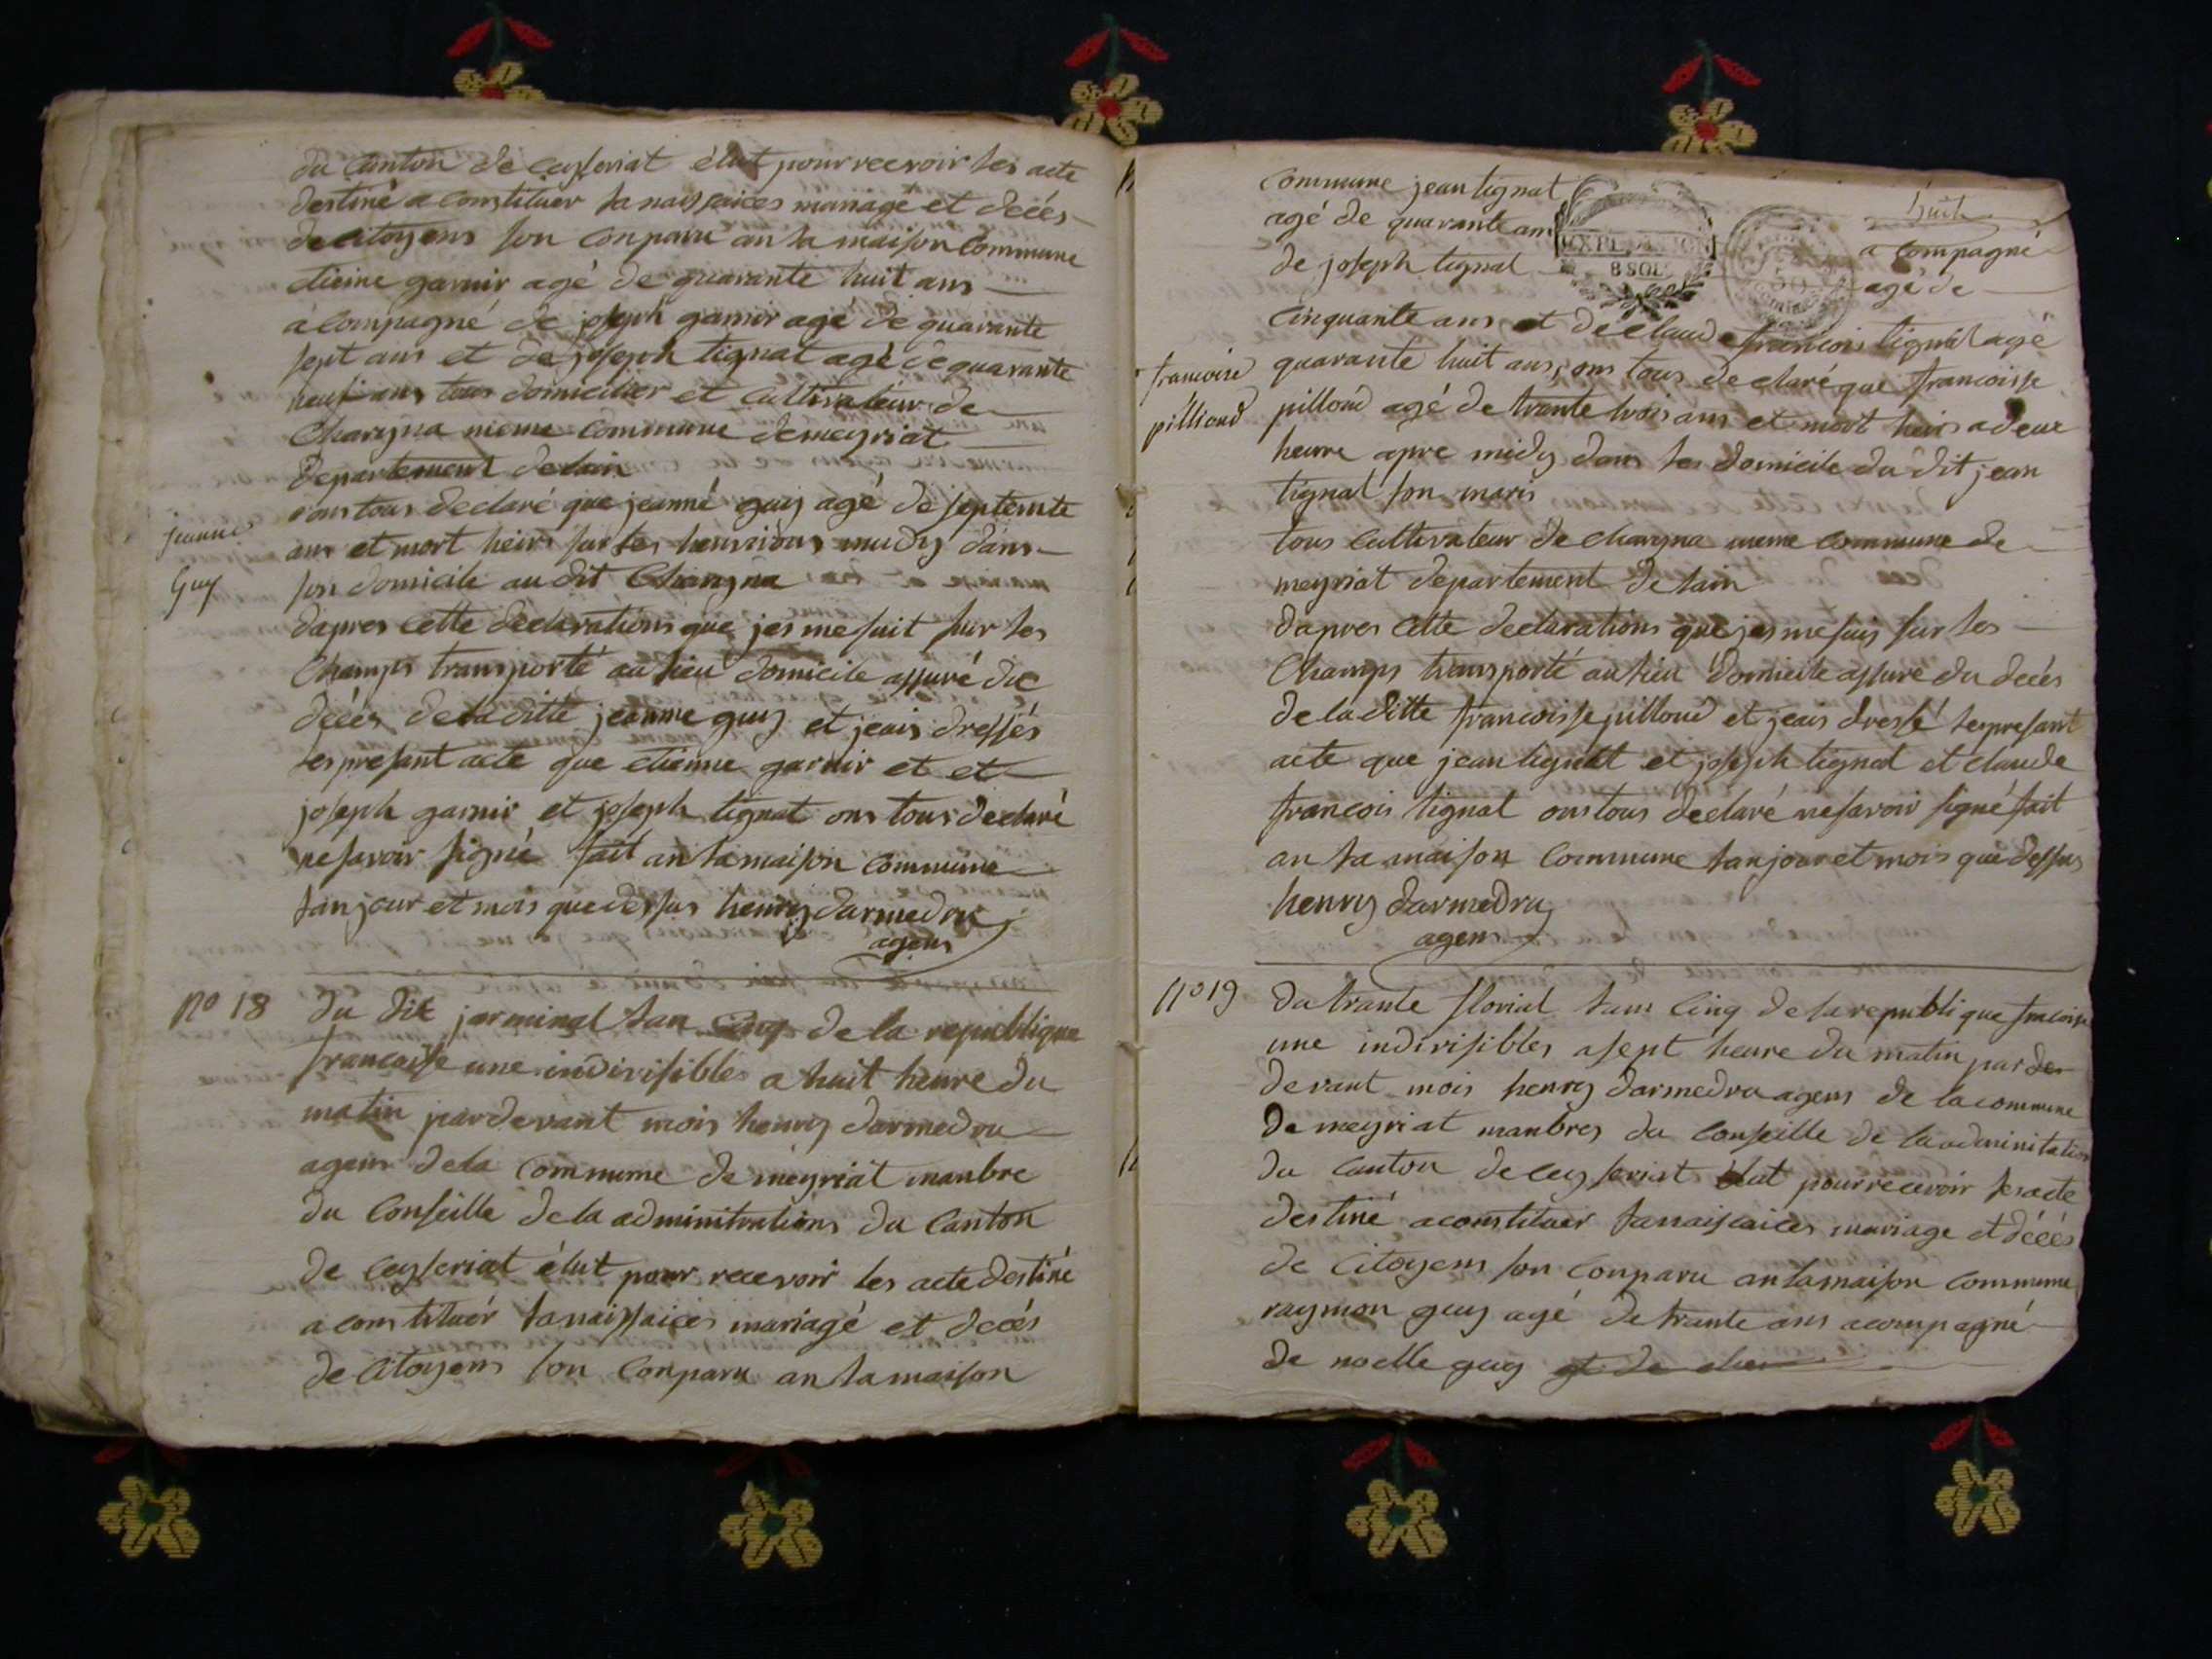 du Canton de ceyseriat élut pour recevoir les acte
destiné a constituer la naissaices mariage et décés
de citoyens son conparu an la maison commune
etiene garnir agé de quarante huit ans
acompagné de joseph garnir agé de quarante
sept ans et de joseph tignat agé de quarante
neuf ans tous domicilier et cultivateur de
Charyna meme commune de meyriat
departement delain
ons tous declaré que jeanne guy agé de septente
jeanne
ans et mort heirs sur les heurs midy dans
Guy
son domicile au dit Charyna
dapres cette declarations que jes me suit sur les
Champs transporté au lieu domicile assuré du
décés de la ditte jeanne guy et jeais dressés
les presant acte que etienne garnir et et
joseph garnir et joseph tignat ons tous declaré
ne savoir signé fait an la maison commune
lan jour et mois que dessus henry darmedru
agens
No 18
du dix jarminal lan cinq de la republique
francaisse une indivisibles a huit heure du
matin par devant mois henry darmedru
agens de la commune de meyriat manbre
du Conseille de la adminitrations du Canton
de ceyseriat élut pour recevoir les acte destiné
a constituér la naissaices mariagé et décés
de citoyens son conparu an la maison
huit
commune jean tignat
agé de quarante ans
a compagné
EXPEDITION
8 SOLS
50
de joseph tignat
agé de
cinquante ans et de claude francois tignat agé
francoise
quarante huit ans, ons tous declaré que francoisse
pilliond
pillond agé de trante trois ans et mort heirs a deux
heurre apre midy dans les domicile du dit jean
tignat son maris
tous cultivateur de charyna meme commune de
meyriat departement de lain
dapres cette declarations que jes me suis sur les
Champs transporté au lieu domicile assuré du decés
de la ditte francoisse pillond et jeais dressé les presant
acte que jean tignat et joseph tignat et claude
francois tignat ons tous declaré ne savoir signé fait
an la maison commune lan jour et mois que dessus
henry darmedru
agens
No 19
du trante florial lans cinq de la republique francoise
une indivisibles a sept heure du matin par de
devant mois henry darmedru agens de la commune
de meyriat manbres du conseille de la adminitation
du Canton de ceyseriat élut pour recevoir les acte
destiné a constituer la naissaices mariage et décés
de Citoyens son conparu an la maison commune
raymon guy agé de trante ans acompagné
de noelle guy et de